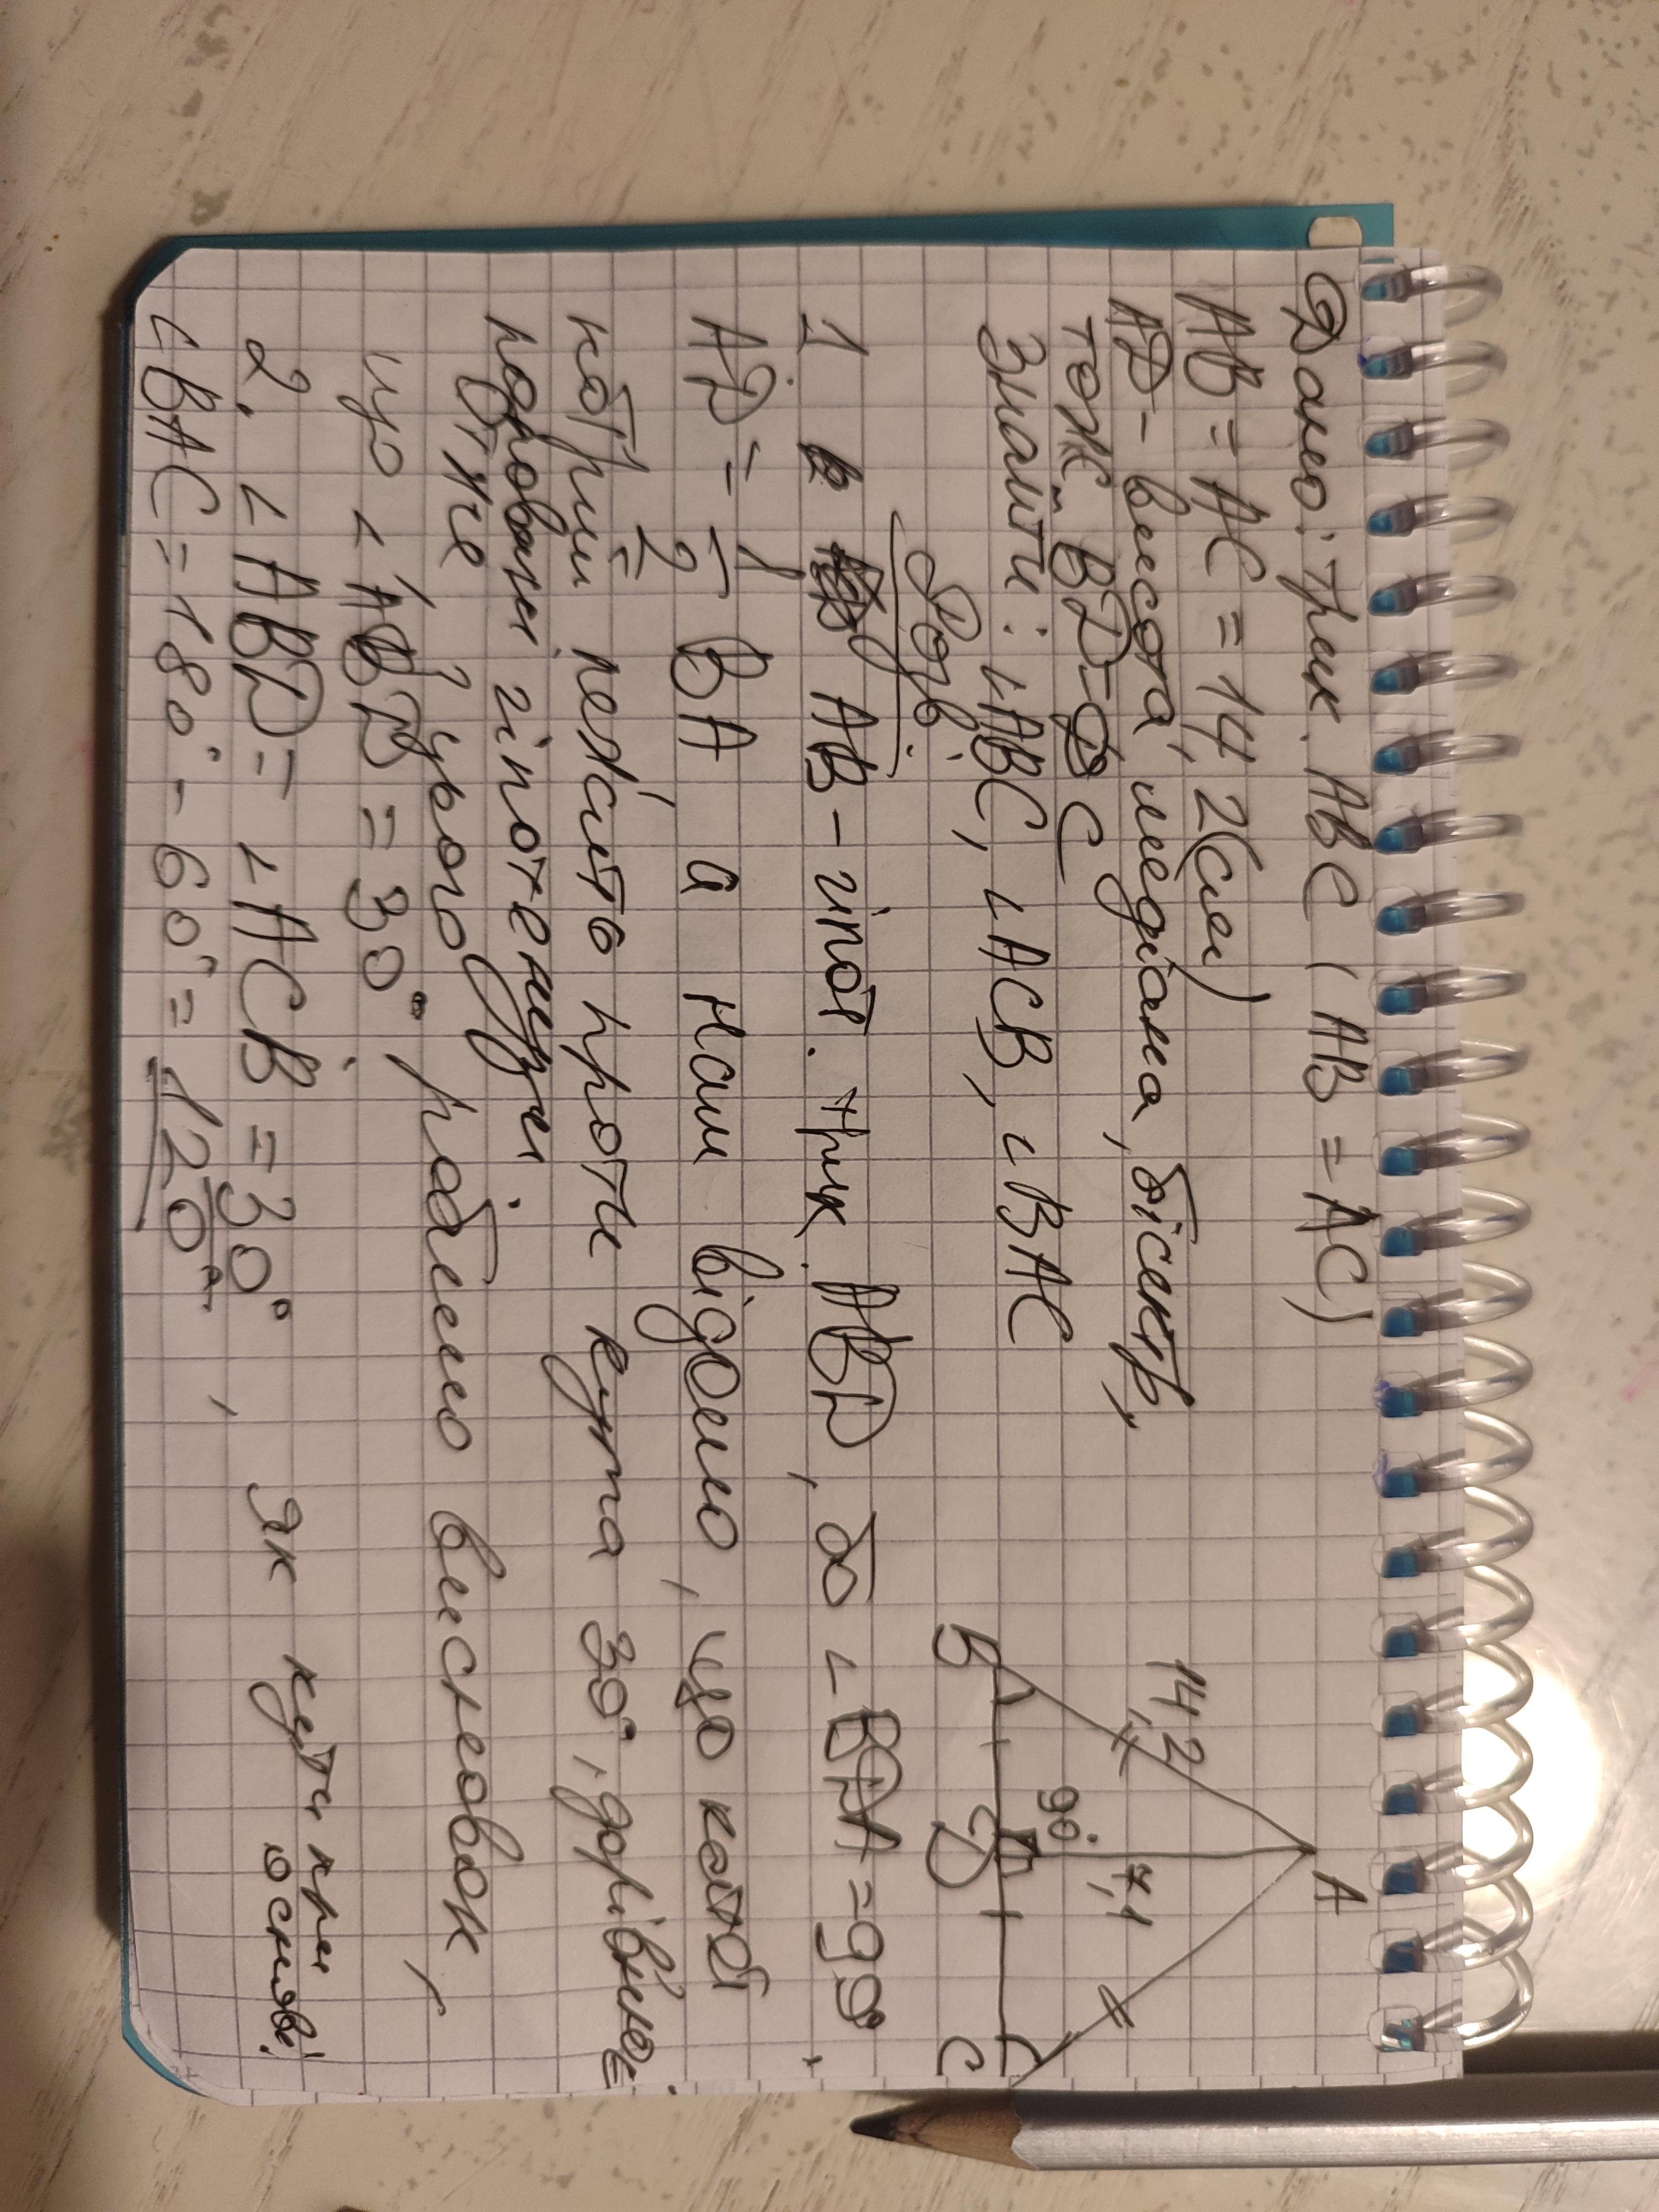 Дано: трик. ABC (AB = AC)
AB = AC = 14,2(см)
AD - висота, медіана, бісектр,
тож BD=DC
Знайти: ∟ABC, ∟ACB, ∟BAC
A
14,2
7,1
90°
B
D
C
Розв.
1. AB - гіпот. трик. ABD, бо ∟BDA = 90°,
AD = 1/2 BA а нам відомо, що катет
котрий лежить проти кута 30°, дорівнює
половини гіпотенузи.
Отже з цього робимо висновок,
що ∟ABD = 30°.
2. ∟ABD = ∟ACB = 30°, як кути при основі
∟BAC = 180° - 60° = 120°